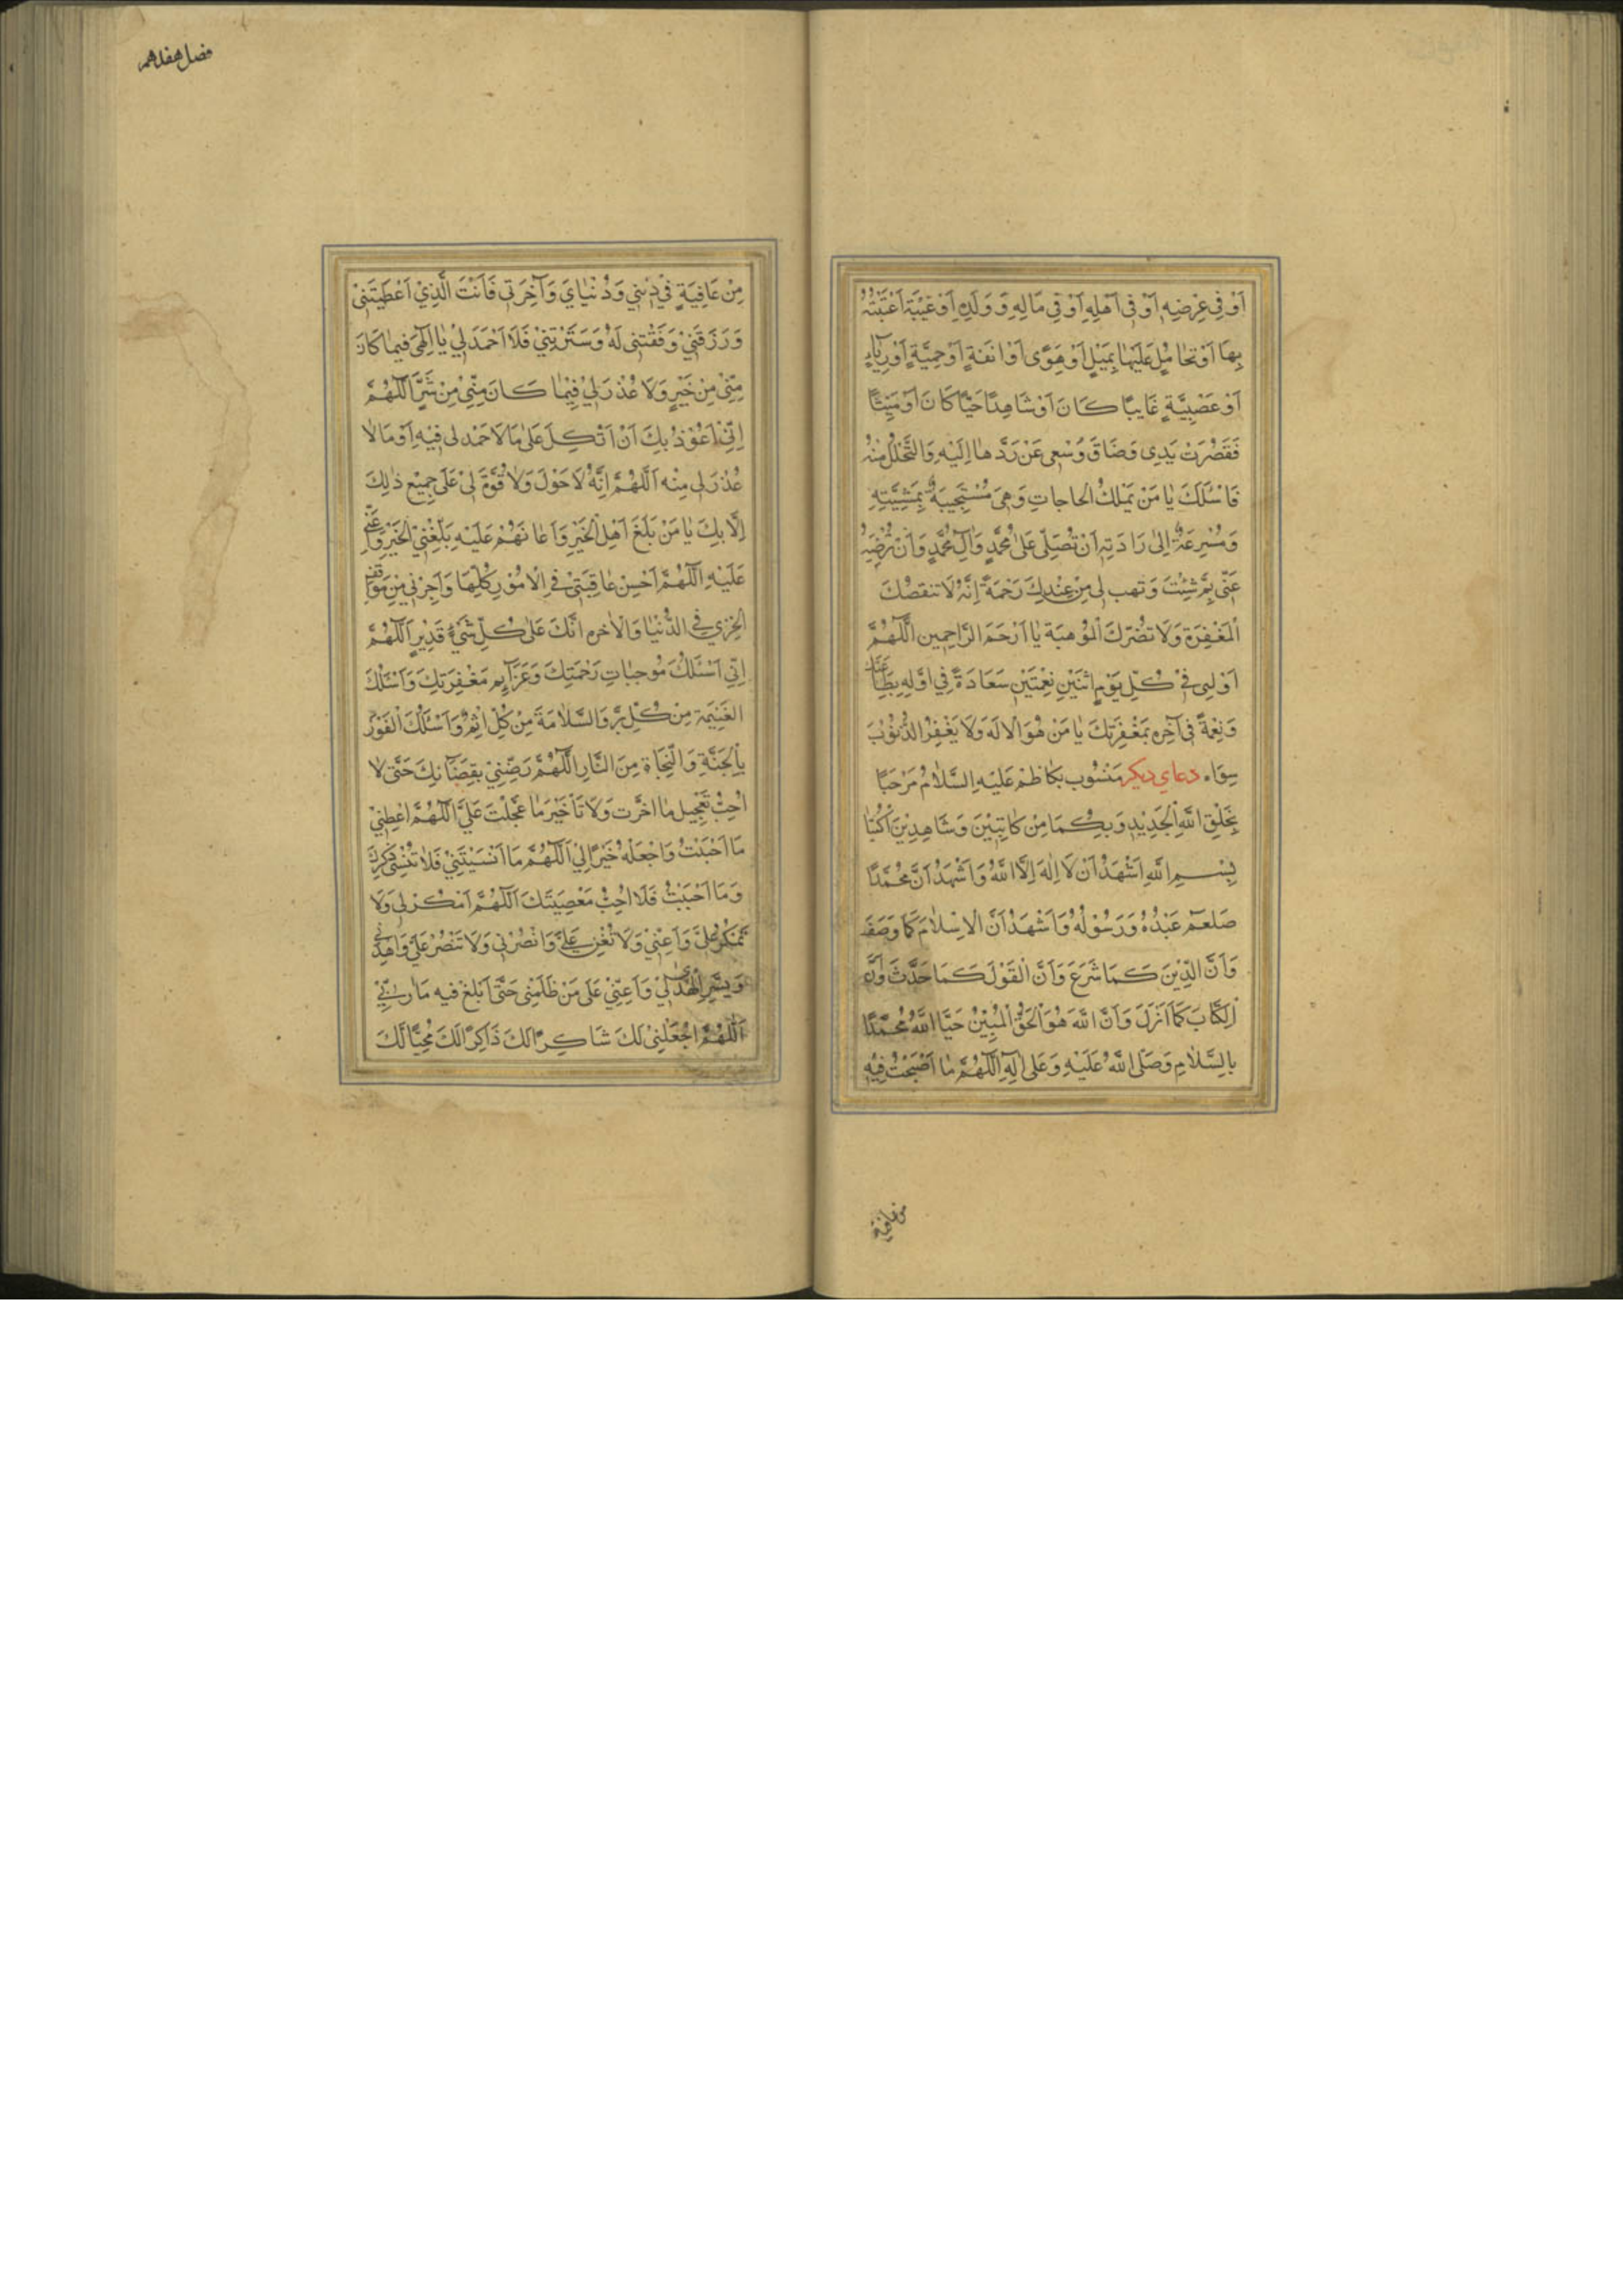 اَوْ فِي عِرْضِهِ اَوْ فِي اَهْلِهِ اَوْ فِي مَالِهِ وَ وَلَدِهِ اَوْ غَيْبَةٍ اغْتَبْتُهُ
بِهَا اَوْ تَحَامُلٍ عَلَيْهَا بِمَيْلٍ اَوْ هَوًى اَوْ اَنَفَةٍ اَوْ حَمِيَّةٍ اَوْ رِيَآءٍ
اَوْ عَصَبِيَّةٍ غَايِبًا كَانَ اَوْ شَاهِدًا حَيًّا كَانَ اَوْ مَيِّتًا
فَقَصُرَتْ يَدِي وَضَاقَ وُسْعِي عَنْ رَدِّهَا اِلَيْهِ وَالتَّحَلُّلُ مِنْهُ
فَاَسْئَلُكَ يَا مَنْ يَمْلِكُ الْحَاجَاتِ وَهِيَ مُسْتَجِيبَةٌ بِمَشِيَّتِهِ
وَمُسْرِعَةٌ اِلى رَادَتِهِ اَنْ تُصَلِّي عَلى مُحَمَّدٍ وَآلِ مُحَمَّدٍ وَاَنْ تُرْضِيَهُ
عَنِّي بِمَ شِئْتَ وَتَهَبَ لِي مِنْ عِنْدِكَ رَحْمَةً اِنَّهُ لَا تَنقصُكَ
الْمَغْفِرَة وَلَا تَضُرُّكَ الْمَوْهِبَة يَا اَرْحَمَ الرَّاحِمِين اَللّٰهُمَّ
اَوْلِنِي فِي كُلِّ يَوْمٍ اثْنَيْنِ نِعْمَتَيْنِ سَعَادَةً فِي اَوَّلِهِ بِطَاعَتِكَ
وَنِعْمَةً فِي آخِرِه بِمَغْفِرَتِكَ يَا مَنْ هُوَ الْاِلَه وَلَا يَغْفِرُ الذُّنُوْبَ
سِوَاه دعاى ديكر مَنْسُوب بكَاظِم عَلَيْهِ السَّلَامُ مَرْحَبًا
بِخَلْقِ اللّٰهِ الْجَدِيْدِ وَبِكُمَا مِنْ كَاتِبَيْنِ وَشَاهِدِيْنَ اُكْتُبَا
بِسْمِ اللّٰهِ اَشْهَدُ اَنْ لَا اِلٰهَ اِلَّا اللّٰهُ وَاَشْهَدُ اَنَّ مُحَمَّدًا
صَلعم عَبْدُهُ وَرَسُوْلُهُ وَاَشْهَدُ اَنَّ الْاِسْلَامَ كَمَا وَصَفَ
وَاَنَّ الدِّيْنَ كَمَا شَرَعَ وَاَنَّ الْقَوْلَ كَمَا حَدَّثَ وَاَنَّ
الْكِتَابَ كَمَا اَنْزَلَ وَاَنَّ اللّٰهَ هُوَ الْحَقُّ الْمُبِيْنُ حَيَّا اللّٰهُ مُحَمَّدًا
بِالسَّلَامِ وَصَلَّى اللّٰهُ عَلَيْهِ وَعَلى آلِهِ اَللّٰهُمَّ مَا اَصْبَحْتُ فِيْهِ
من عافية
فصل هفدهم
مِنْ عَافِيَةٍ فِي دِيْنِي وَدُنْيَايَ وَآخِرَتِي فَاَنْتَ الَّذِيْ اَعْطَيْتَنِيْ
وَرَزَقْتَنِيْ وَفَّقْتَنِي لَهُ وَسَتَرْتَنِيْ فَلَا اَحْمَدَ لِيْ يَا اِلٰهِيَ فِيمَا كَانَ
مِنِّيْ مِنْ خَيْرٍ وَلَا عُذْرَ لِيْ فِيْمَا كَانَ مِنِّيْ مِنْ شَرٍّ اَللّٰهُمَّ
اِنِّيْ اَعُوْذُ بِكَ اَنْ اَتَّكِلَ عَلى مَا لَا حَمْدَ لِي فِيْهِ اَوْ مَا لَا
عُذْرَ لِي مِنْه اَللّٰهُمَّ اِنَّهُ لَا حَوْلَ وَلَا قُوَّةَ لِيْ عَلَى جَمِيْعِ ذٰلِكَ
اِلَّا بِكَ يَا مَنْ بَلَغَ اَهْلَ الْخَيْرِ وَاَعَانَهُمْ عَلَيْهِ بَلِّغْنِيْ الْخَيْرَ وَاَعِنِّي
عَلَيْهِ اَللّٰهُمَّ اَحْسِنْ عَاقِبَتِيْ فِي الْاُمُوْرِ كُلِّهَا وَاَجِرْنِي مِنْ مَوَاقِفِ
الْخِزْيِ فِي الدُّنْيَا وَالْاٰخِرِه اِنَّكَ عَلى كُلِّ شَيْءٍ قَدِيْر اَللّٰهُمَّ
اِنِّي اَسْئَلُكَ مُوجِبَاتِ رَحْمَتِكَ وَعَزَآئِمِ مَغْفِرَتِكَ وَاَسْئَلُكَ
الْغَنِيْمَةَ مِنْ كُلِّ بِرٍّ وَالسَّلَامَةَ مِنْ كُلِّ اِثْمٍ وَاَسْئَلُكَ الْفَوْزَ
بِالْجَنَّةِ وَالنَّجَاةِ مِنَ النَّارِ اَللّٰهُمَّ رَضِّنِيْ بِقَضَآئِكَ حَتّٰى لَا
اُحِبَّ تَعْجِيْلَ مَا اَخَّرْت وَلَا تَاْخِيْرَ مَا عَجَّلْتَ عَلَيَّ اَللّٰهُمَّ اَعْطِنِيْ
مَا اَحْبَبْتُ وَاجْعَلْهُ خَيْرًا لِيْ اَللّٰهُمَّ مَا اَنْسَيْتَنِيْ فَلَا تُنْسِنِي ذِكْرَكَ
وَمَا اَحْبَبْتُ فَلَا اُحِبُّ مَعْصِيَتَكَ اَللّٰهُمَّ اَمْكُرْ لِي وَلَا
تَمْكُرْ عَلَيَّ وَاَعِنِّيْ وَلَا تُعِنْ عَلَيَّ وَانْصُرْنِي وَلَا تَنْصُرْ عَلَيَّ وَاهْدِنِي
وَيَسِّرِ الْهُدٰى لِيْ وَاَعِنِّيْ عَلَى مَنْ ظَلَمَنِي حَتّٰى اَبْلُغَ فِيه مَارِبِيْ
اَللّٰهُمَّ اجْعَلْنِيْ لَكَ شَاكِرًا لَكَ ذَاكِرًا لَكَ مُحِبًّا لَكَ